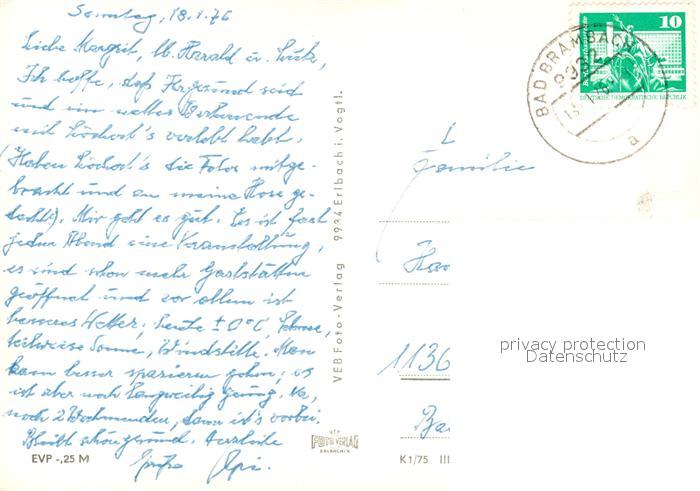 Sonntag, 18.1.76
Liebe Margrit, lb. Harald u.
Ich hoffe, daß Ihr gesund seid
und ein nettes Wochenende
mit verlebt habt.
(Haben die Fotos mitge-
bracht und an meine Hose ge-
dacht?). Mir geht es gut. Es ist fast
jeden Abend eine Veranstaltung,
es sind schon mehr Gaststätten
geöffnet und vor allem ist
besseres Wetter; heute ± 0°C Schnee,
teilweise Sonne, Windstille. Man
kann besser spazieren gehen; es
ist aber noch langweilig genug. Na,
noch 2 Wochenenden, dann ist's vorbei.
Bleibt schön gesund. Herzliche
Grüße
EVP -,25 M
VEB Foto-Verlag 9934 Erlbach i. Vogtl.
VEB
FOTO VERLAG
ERLBACH/V.
K 1/75 III
Familie
1136
10
DEUTSCHE DEMOKRATISCHE REPUBLIK
BAD BRAMBACH
9932
a
privacy protection
Datenschutz